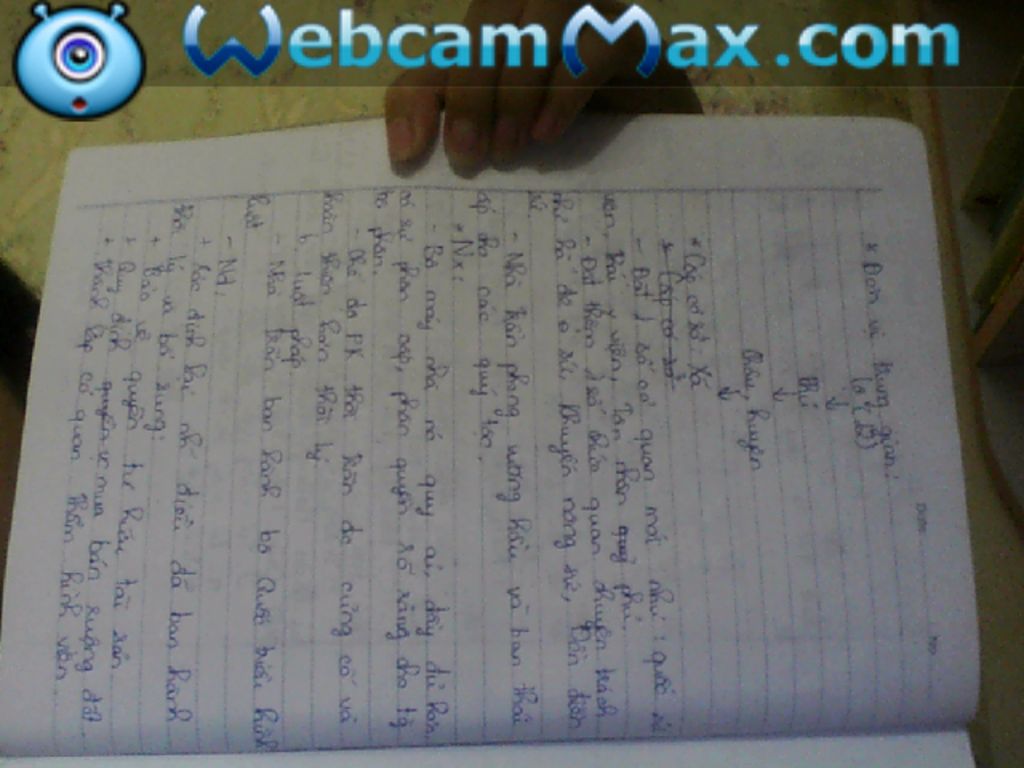 WebcamMax.com
* Đơn vị trung gian:
lộ (12)
↓
Phủ
↓
Châu, huyện
↓
* Cấp cơ sở: Xã
- Đặt 1 số cơ quan mới như: quốc sử
viện, thái y viện, Tôn nhân phủ.
- Đặt thêm 1 số chức quan chuyên trách
như hà đê sứ, khuyến nông sứ, Đồn điền
sứ.
- Nhà Trần phong vương hầu và ban thái
ấp cho các quý tộc.
* Nx:
- Bộ máy nhà nc quy củ, đầy đủ hơn,
có sự phân cấp, phân quyền rõ ràng cho từ
bộ phận.
- Chế độ PK thời Trần đc củng cố và
hoàn thiện hơn thời lý
b, luật pháp
- Nhà Trần ban hành bộ Quốc triều hình
luật
- Nd:
+ Xác định lại những điều đã ban hành
thời lý và bổ sung:
+ Bảo vệ quyền tư hữu tài sản
+ Quy định quyền mua bán ruộng đất.
+ thành lập cơ quan thẩm hình viện